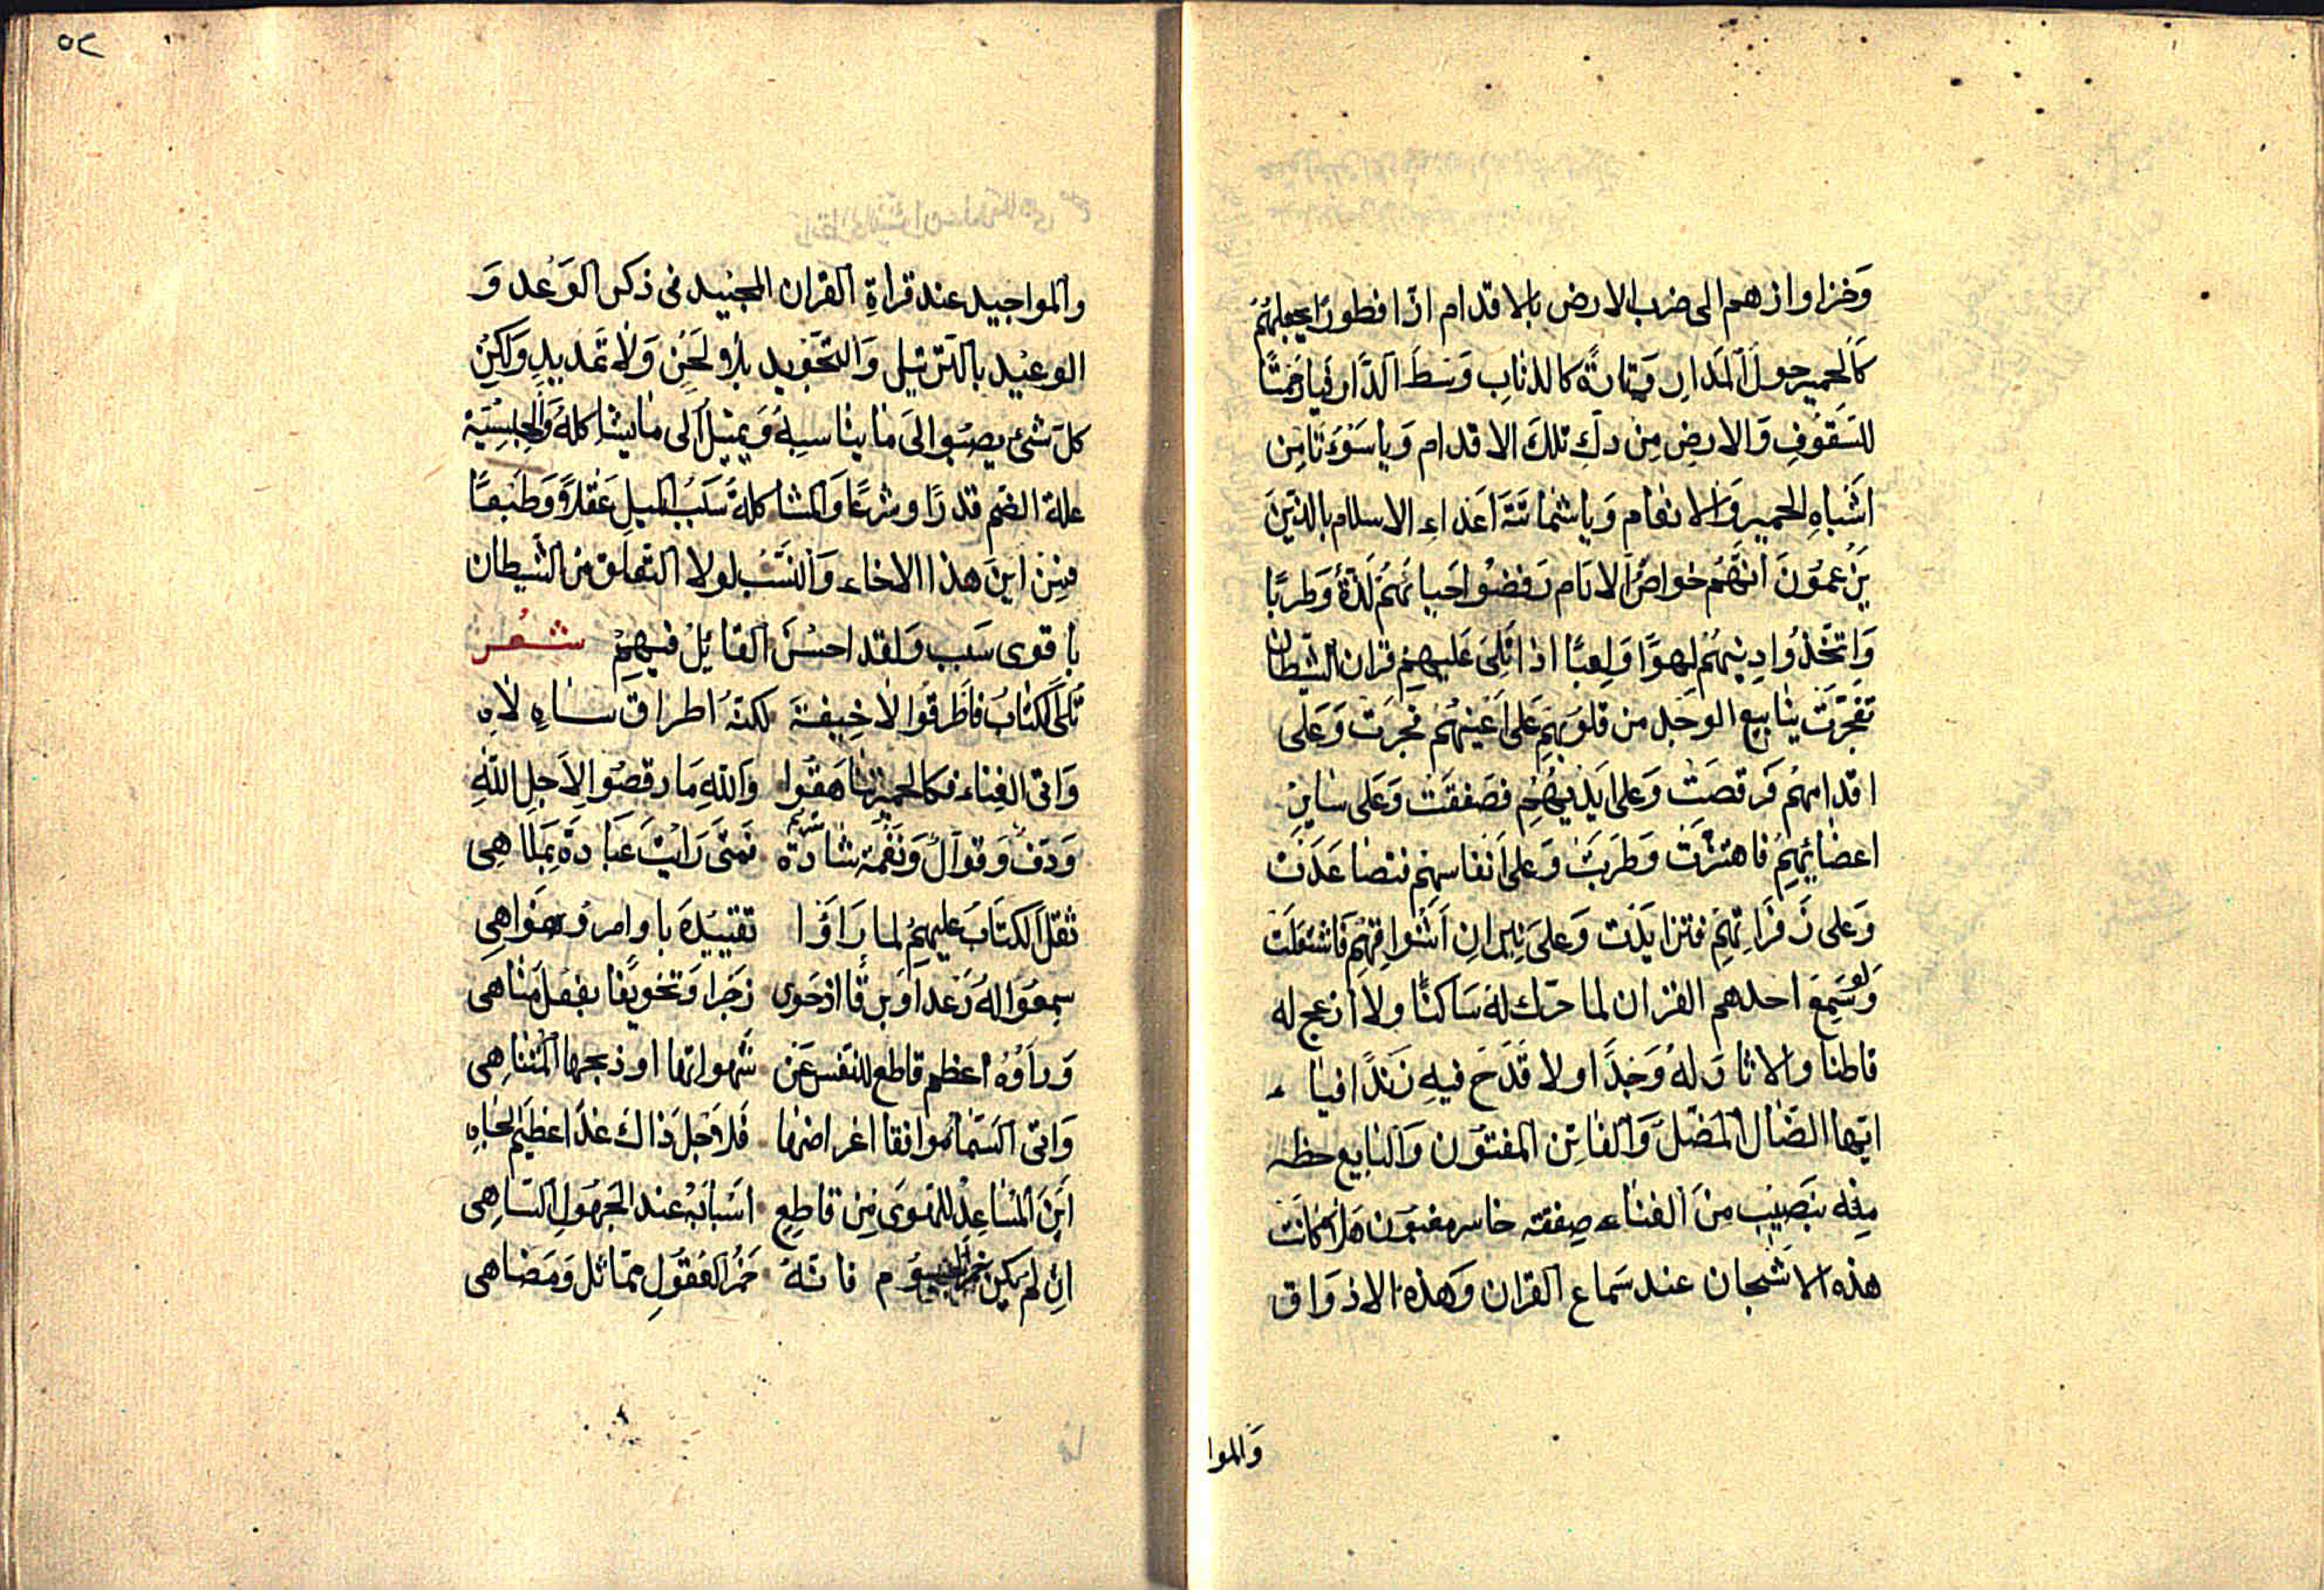 وَخزا وازهم الى ضرب الارض بالاقدام ازًا فطورًا يجعلهُم
كَالحمير حول المَدار وَتارةً كالذباب وَسَط الدَّار فيا رَحمَتًا
للسَقُوفِ وَالارضِ مِن دكِ تلكَ الاقدام وَيا سَوْءَتَا مِن
اَشباهِ الحمير وَالانعام وَيا شماتَتَ اَعدَاءِ الاسلام بالذينَ
يَزعمُونَ اَنّهَم خواصُ الانام رَفضُوا حَياتَهم لَذةً وَطربًا
وَاتخَّذُوا دِينهُم لهوًا وَلعِبًا اذا تلى عَليهم قران الشيطان
تفجَّرَت ينابيع الوَجد من قلوبهم عَلى اَعينهُم فجَرت وَعَلى
اقدامهمُ فَرقصَت وَعلى اَيديهم فصَفقَت وَعَلى سائر
اعضائهمِ فاهتزت وَطَربَت وَعلى اَنفاسهم فتصَاعَدَت
وَعلى زَفَرَاتهمَ فتزايدَت وَعلىَ نيران اَشوَاقهم فَاشتعَلَت
وَلو سَمِعَ احدهم القران لما حرك لهَ سَاكنًا ولا ازعج له
قاطنا ولا ثارَ لهُ وَجدًا ولا قَدَحَ فيهِ زَندًا فيا
ايّها الضَال المَضلّ وَالفاتِن المفتوُن وَالبايع حظه
مِنه بنَصيب مِنَ الغناء صِفقته خاسر مغبُون هَلا كانَت
هذه الاشجان عند سَماع القران وَهذه الاذوَاق
وَالموا
٥٢
والمواجيد عند قراةِ القران المجيد فى ذكر الوَعْد وَ
الوعيْد بالترتيل وَالتجَويد بلا لحَن وَلا تمَديدٍ وَلكِن
كلّ شئ يصبُوا الىَ مَا يناسبهُ وَيميلُ الى مَا يشاكلهُ وَالجنسيَّة
علة الضم قدرًا وشرعًا وَالمشاكلةَ سَبَبُ الميل عَقلاً وَطَبعًا
فمِن اينَ هذا الاخاء وَالنسَبُ لولا التعلق من الشيطان
باقوى سَبب وَلقد احسَن القائِلُ فيهِمْ شعر
تُلىَ الكتابُ فَاَطرقُوا لا خِيفةَ لكنهُ اطراق ساهٍ لاهِ
وَاتى الغِناء فكالحمير تناهَقوُا وَاللهِ مَا رقصُوا لاَجلِ اللهِ
وَدَفٌ وَقوالٌ وَنَغمة شادَن فَمَتىَ رَايتَ عَبَادةً بَملاهِى
ثقلَ الكتَابُ عليهمُ لما رَاَوْا تقييدَهُ باوامر وَنوَاهِى
سمعُوَا لهُ رَعدًا وَبرقًا اذ حَوى زجرًا وَتخويفًا بفعلِ مَناهى
وَراَوْهُ اعظم قاطع للنفسَ عَن شهواتها او ذبحها المُتنَاهى
وَاتى السَّماع موافقا اغراضها فَلاجلِ ذاكَ غدا عظيم الجَاهِ
اَينَ المُسَاعِدُ للهَوَى مِن قاطِع اسَبابَهْ عند الجَهُولِ السَّاهِى
ان لم يَكن خمر الجسُوُم فانهُ خمر العُقوُلِ مماثل وَمَضاهى